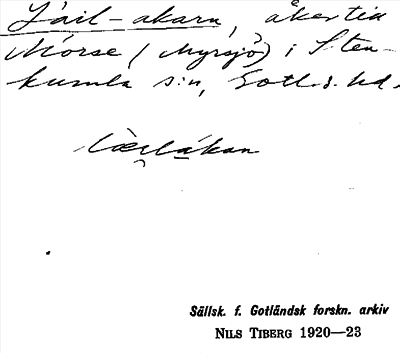 Låil-akarn, åker till
Mörse (Myrsjö) i Sten-
kumla s:n, Gotl. s. hd.
Sällsk. f. Gotländsk forskn. arkiv
NILS TIBERG 1920—23